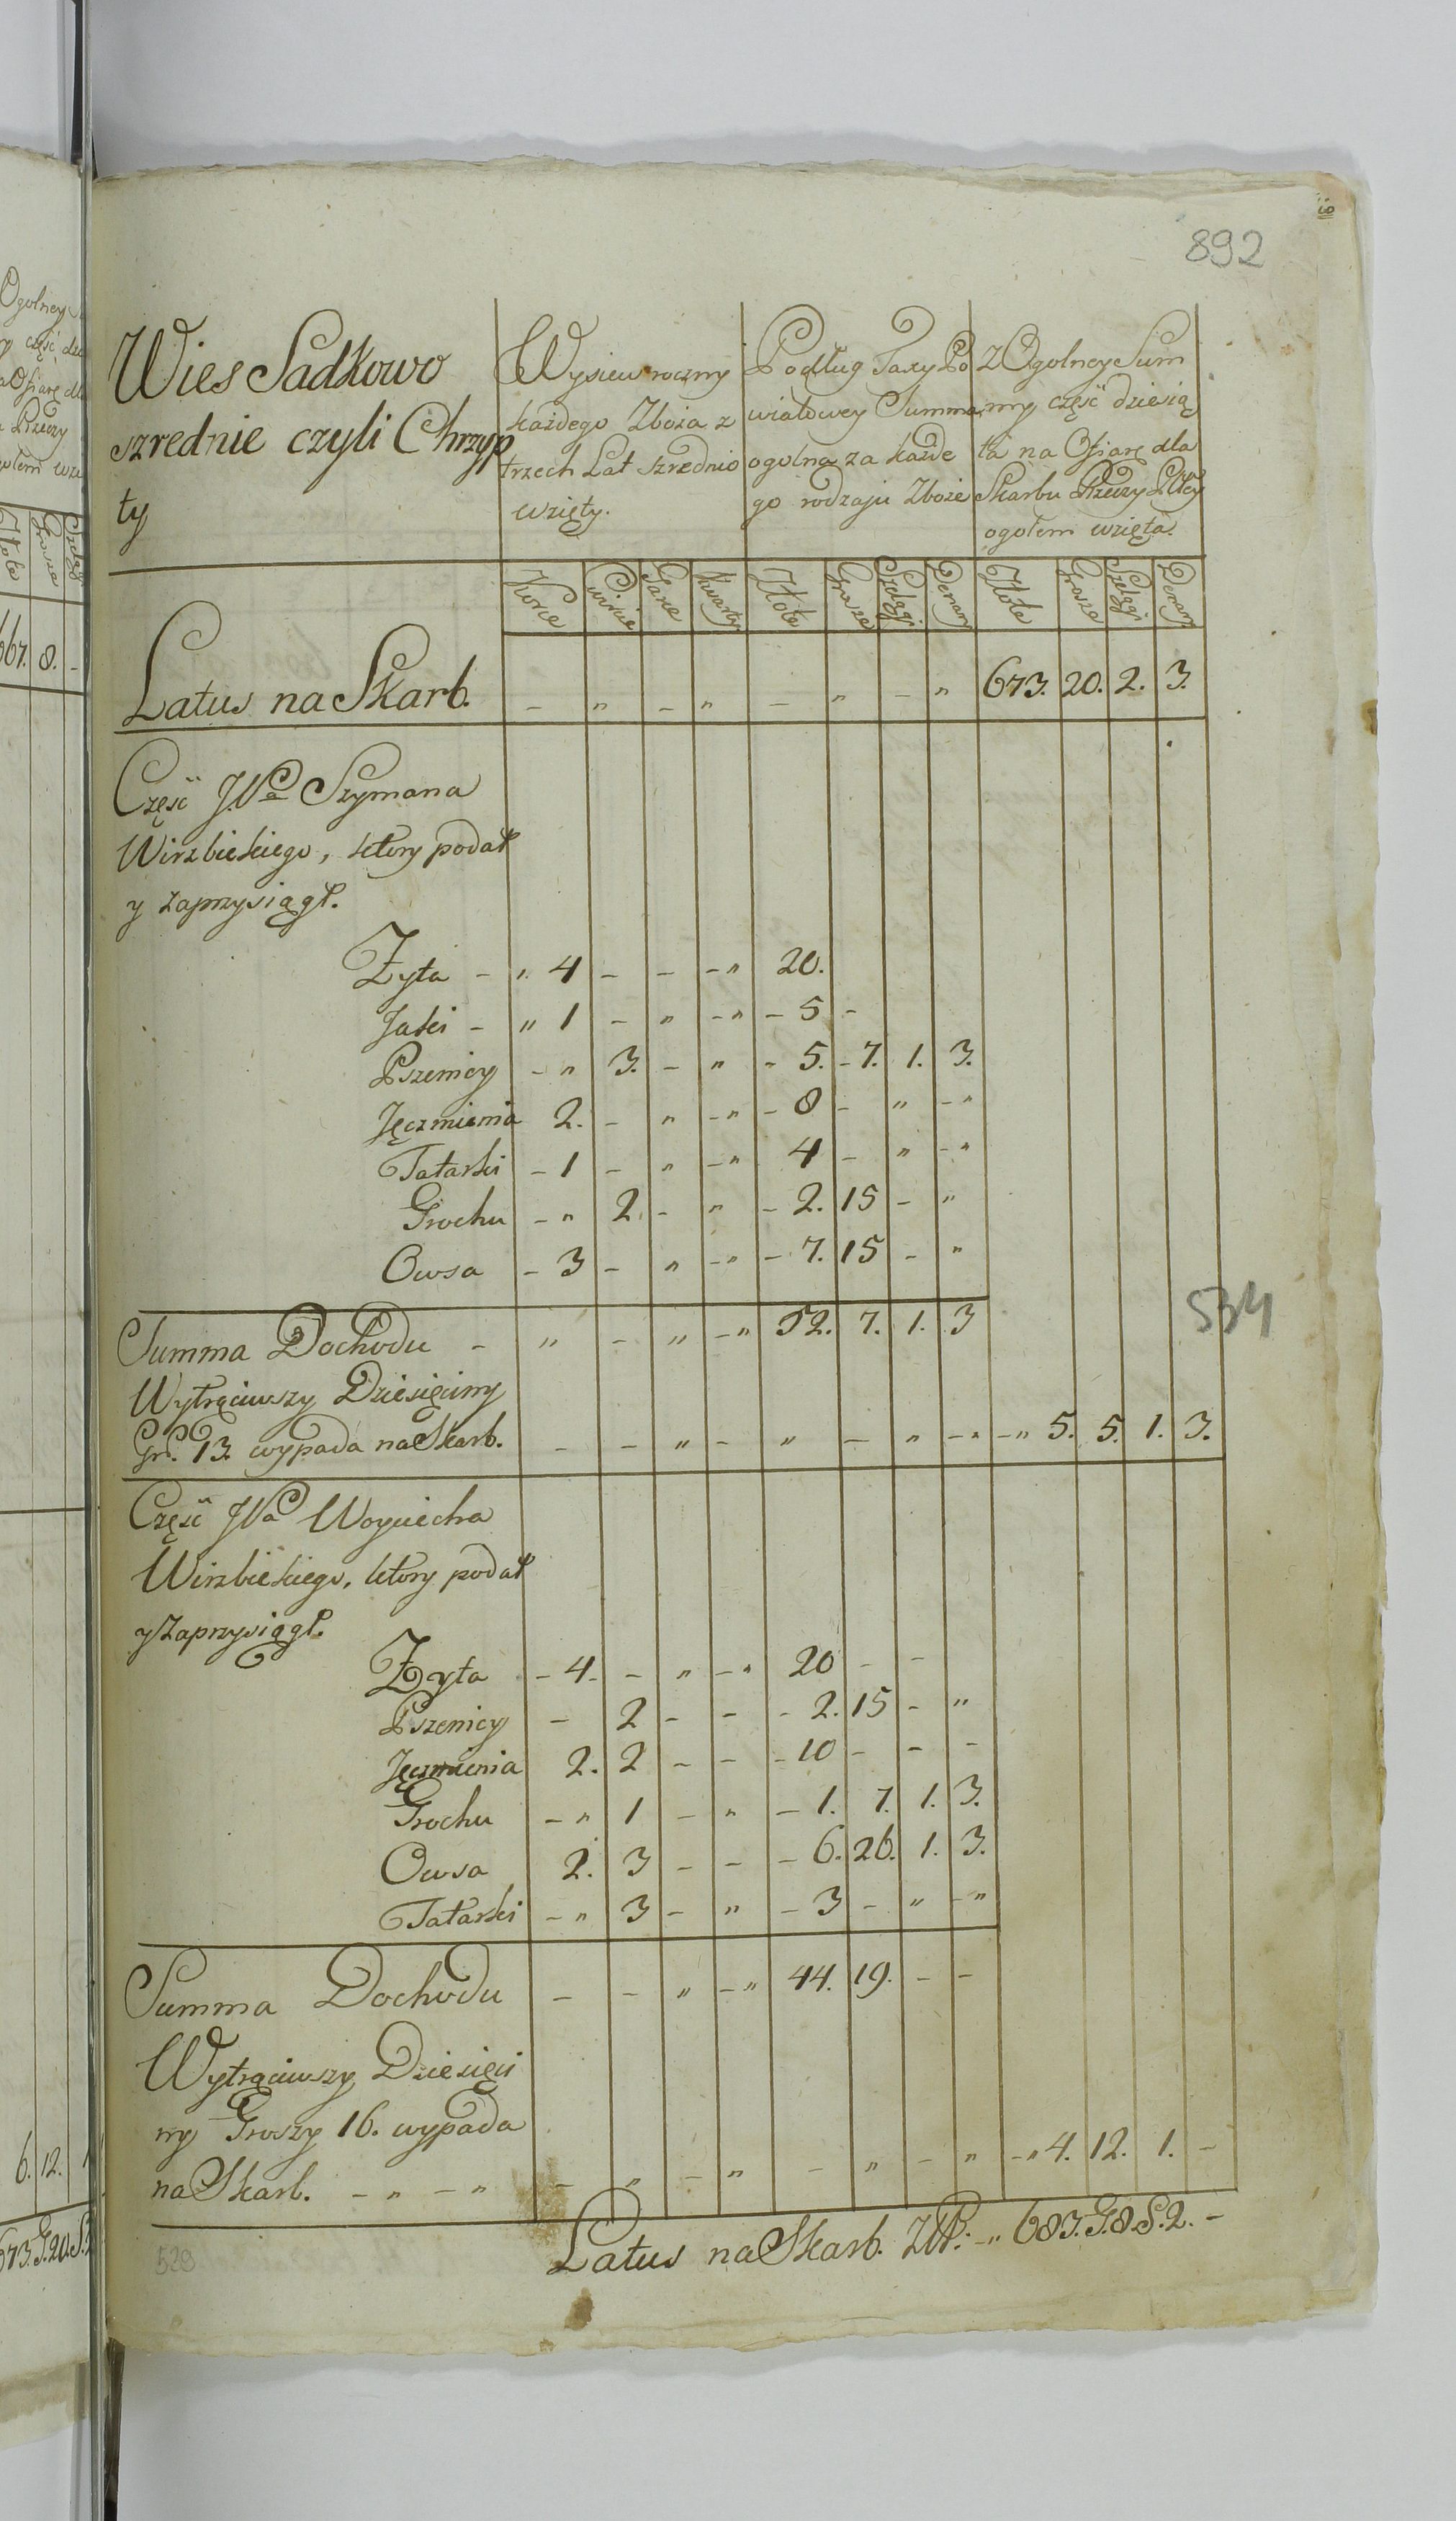 892
Wies Sadkowo
szrednie czyli Chrzyp
ty
Wysiew roczny
każdego Zboża z
trzech Lat szrednio
wzięty.
Podług Taxy Po
wiatowey Summa
ogolna za każde
go rodzaju Zboże
z Ogolney Sum
my część dziesią
ta na Ofiarę dla
Skarbu Rzeczy Pltey
ogołem wzięta.
Korce Cwircie Garce Kwarty Złote Grosze Szelągi Denary Złote Grosze Szelągi Denary
Latus na Skarb. - „ - „ - „ - „ 673. 20. 2. 3.
Część JPa Szymana
Wirzbickiego, ktory podał
y zaprzysiągł.
Zyta - „ 4 - - - „ 20.
Jarki - „ 1 - „ - „ - 5 -
Pszenicy - „ 3. - „ - 5. - 7. 1. 3.
Jęczmienia 2. - „ - „ - 8 - „ - „
Tatarki - 1 - „ - „ 4 - „ - „
Grochu - „ 2. - „ - 2. 15 - „
Owsa - 3 - „ - „ - 7. 15 - „
Summa Dochodu - „ - „ - „ 52. 7. 1. 3
534
Wytrąciwszy Dziesięciny
Gr. 13. wypada na Skarb. - - „ - „ - „ - „ - „ 5. 5. 1. 3.
Część JPa Woyciecha
Wirzbickiego, ktory podał
y zaprzysiągł.
Zyta - 4. - „ - „ 20 - -
Pszenicy - 2 - - - 2. 15 - „
Jęczmienia 2. 2 - - - 10 - - -
Grochu - „ 1 - „ - 1. 7. 1. 3.
Owsa 2. 3 - - - 6. 26. 1. 3.
Tatarki - „ 3 - „ - 3 - „ - „
Summa Dochodu - - „ - „ 44. 19. - -
Wytrąciwszy Dziesięci
ny Groszy 16. wypada
na Skarb. - „ - „ - „ - „ - „ - „ - „ 4. 12. 1. -
Latus na Skarb. ZłP: - „ 683. G. 8. S. 2. -
529